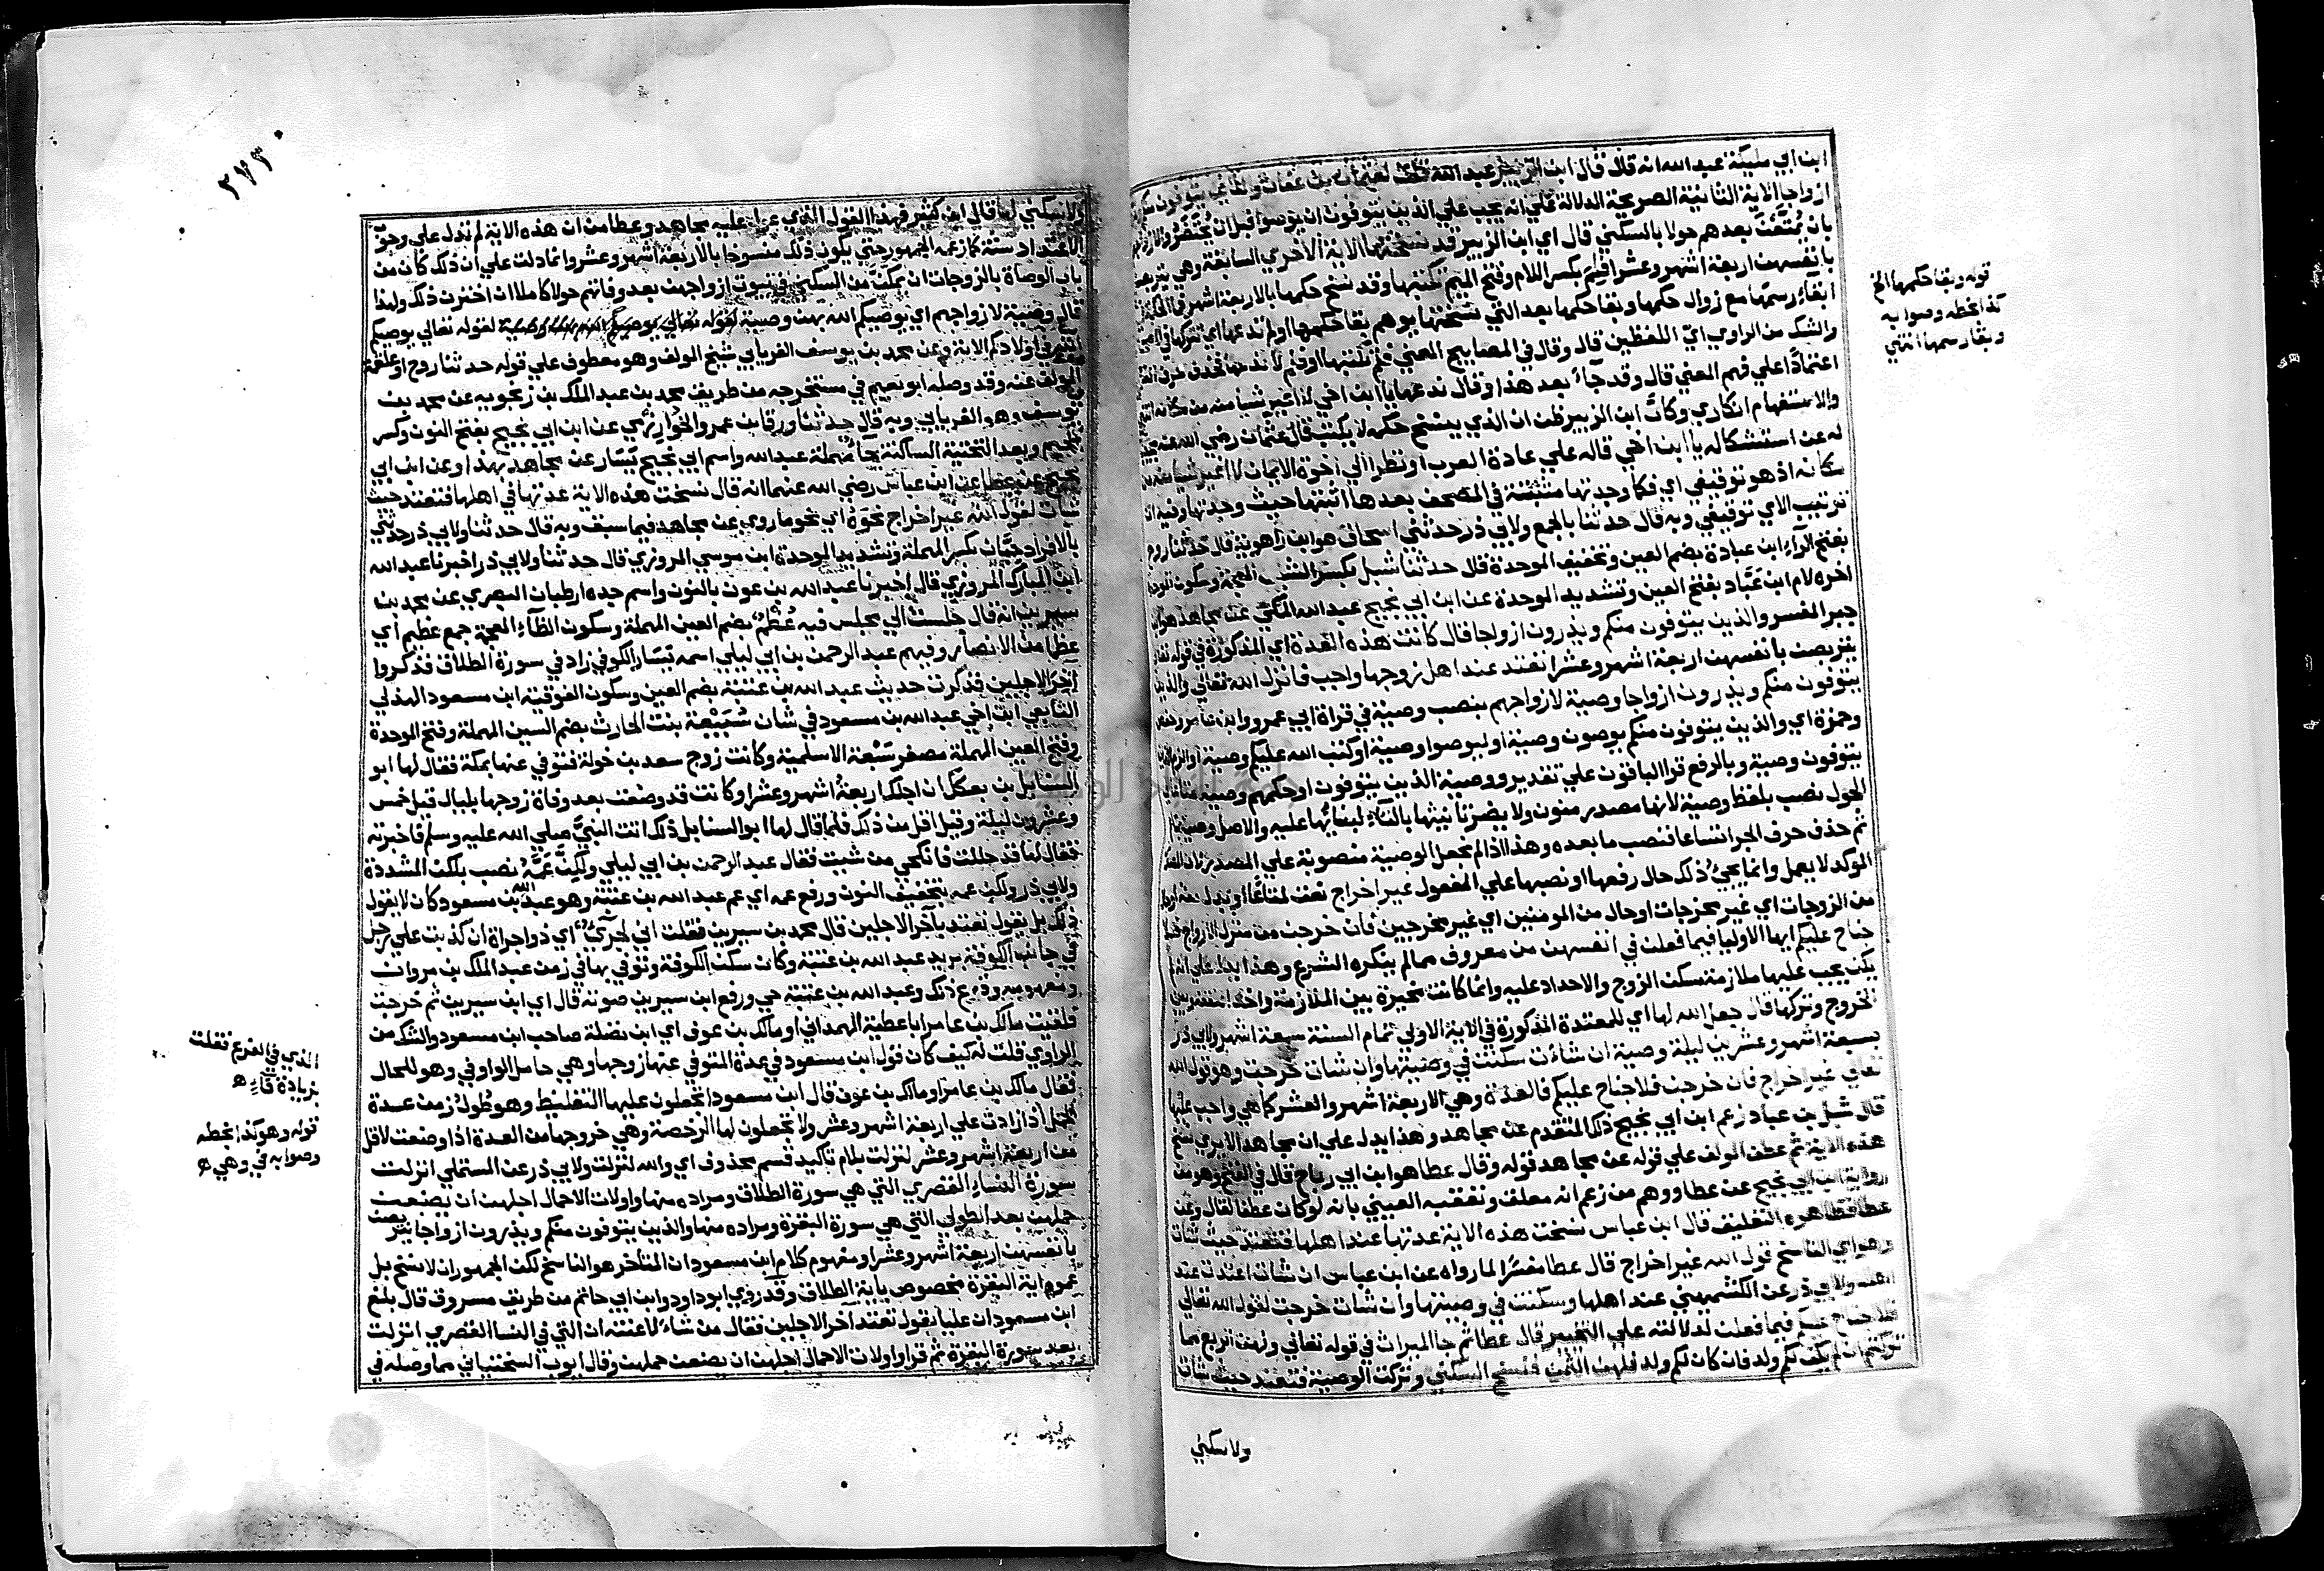 ابن ابي مليكة عبد الله انه قال قال ابن الزبير عبد الله قلت لعثمان بن عفان والذين يتوفون منكم
ازواجا الاية الثانية الصريحة الدلالة علي انه يجب علي الذين يتوفون ان يوصوا قبل ان يحتضروا لازواجهم
بان تمتعن بعدهم حولا بالسكني قال اي ابن الزبير قد نسختها الاية الاخري السابقة وهي يتربصن
بانفسهن اربعة اشهر وعشرا فلم بكسر اللام وفتح الميم تكتبها وقد نسخ حكمها بالاربعة اشهر فما الحكمة في
ابقاء رسمها مع زوال حكمها وبقا حكمها بعد التي نسختها يوهم بقا حكمها او لم تدعها اي تتركها في المصحف
والشك من الراوي اي اللفظين قال وقال في المصابيح المعني فلم تكتبها او فلم لا تدعها فحذف حرف النفي
اعتمادا علي فهم المعني قال وقد جاء بعد هذا وقال ندعها يا ابن اخي لا اغير شيا منه من مكانه انتهي
والاستفهام انكاري وكان ابن الزبير ظن ان الذي ينسخ حكمه لا يكتب قال عثمان رضي الله عنه مجيبا
له عن استشكاله يا ابن اخي قاله علي عادة العرب او نظرا الي اخوة الايمان لا اغير شيا منه من
مكانه اذ هو توقيفي اي فكما وجدتها مثبتة في المصحف بعدها اثبتها حيث وجدتها وفيه ان
ترتيب الاي توقيفي وبه قال حدثنا بالجمع ولابي ذر حدثني اسحاق هو ابن راهوية قال حدثنا روح
بفتح الراء ابن عبادة بضم العين وتخفيف الموحدة قال حدثنا شبل بكسر الشين المعجمة وسكون الموحدة
اخره لام ابن عباد بفتح العين وتشديد الموحدة عن ابن ابي نجيح عبد الله المكي عن مجاهد هو ابن
جبر المفسر والذين يتوفون منكم ويذرون ازواجا قال كانت هذه العدة اي المذكورة في قوله تعالي
يتربصن بانفسهن اربعة اشهر وعشرا تعتد عند اهل زوجها واجب فانزل الله تعالي والذين
يتوفون منكم ويذرون ازواجا وصية لازواجهم بنصب وصية في قراة ابي عمرو وابن عامر وحفص
وحمزة اي والذين يتوفون منكم يوصون وصية او ليوصوا وصية او كتب الله عليكم وصية او الزم الذين
يتوفون وصية وبالرفع قرا الباقون علي تقدير ووصية الذين يتوفون او حكمهم وصية متاعا الي
الحول نصب بلفظ وصية لانها مصدر منون ولا يضر تانيثها بالتاء لبنائها عليه والاصل وصية بمتاع
ثم حذف حرف الجر اتساعا فنصب ما بعده وهذا اذا لم تجعل الوصية منصوبة علي المصدر لان المصدر
الموكد لا يعمل وانما يجئ ذلك حال رفعها او نصبها علي المفعول غير اخراج نعت لمتاعا او بدل منه او حال
من الزوجات اي غير مخرجات او حال من الموصين اي غير مخرجين فان خرجن من منزل الازواج فلا
جناح عليكم ايها الاوليا فيما فعلن في انفسهن من معروف مما لم ينكره الشرع وهذا يدل علي انه لم
يكن يجب عليها ملازمة مسكن الزوج والاحداد عليه وانما كانت مخيرة بين الملازمة واخذ النفقة وبين
الخروج وتركها قال جعل الله لها اي للمعتدة المذكورة في الاية الاولي تمام السنة سبعة اشهر ولابي ذر
بسبعة اشهر وعشرين ليلة وصية ان شاءت سكنت في وصيتها وان شات خرجت وهو قول الله
تعالي غير اخراج فان خرجن فلا جناح عليكم فالعدة وهي الاربعة اشهر والعشر كما هي واجب عليها
قال شبل بن عباد زعم ابن ابي نجيح ذلك المتقدم عن مجاهد وهذا يدل علي ان مجاهد الا يري نسخ
هذه الاية ثم عطف المولف علي قوله عن مجاهد قوله وقال عطا هو ابن ابي رباح قال في الفتح وهو من
رواية ابن ابي نجيح عن عطا ووهم من زعم انه معلق وتعقبه العيني بانه لو كان عطفا لقال وعن
عطا فظاهره التعليق قال ابن عباس نسخت هذه الاية عدتها عند اهلها فتعتد حيث شات
وهو اي الناسخ قول الله غير اخراج قال عطا مفسرا لما رواه عن ابن عباس ان شات اعتدت عند
اهله ولابي ذر عن الكشميهني عند اهلها وسكنت في وصيتها وان شات خرجت لقول الله تعالي
فلا جناح عليكم فيما فعلن لدلالته علي التخيير قال عطا ثم جا الميراث في قوله تعالي ولهن الربع مما
تركتم ان لم يكن لكم ولد فان كان لكم ولد فلهن الثمن فنسخ السكني وتركت الوصية فتعتد حيث شات
ولا سكني
قوله وبقا حكمها الخ
كذا بخطه وصوابه
وبقا رسمها انتهي
٢٧٣
ولا سكني لها قال ابن كثير فهذا القول الذي عول عليه مجاهد وعطا من ان هذه الاية لم تدل علي وجوب
الاعتداد سنة كما زعمه الجمهور حتي يكون ذلك منسوخا بالاربعة اشهر وعشر وانما دلت علي ان ذلك كان من
باب الوصاة بالزوجات ان يمكن من السكني في بيوت ازواجهن بعد وفاتهم حولا كاملا ان اخترن ذلك ولهذا
قال وصية لازواجهم اي يوصيكم الله بهن وصية لقوله تعالي يوصيكم
الله في اولادكم الاية وعن محمد بن يوسف الفريابي شيخ المولف وهو معطوف علي قوله حدثنا روح او علقه
المولف عنه وقد وصله ابو نعيم في مستخرجه من طريق محمد بن عبد الملك بن زنجويه عن محمد بن
يوسف وهو الفريابي وبه قال حدثنا ورقا بن عمرو الخوارزمي عن ابن ابي نجيح بفتح النون وكسر
الجيم وبعد التحتية الساكنة حا مهملة عبد الله واسم ابي نجيح يسار عن مجاهد بهذا وعن ابن ابي
نجيح عن عطا عن ابن عباس رضي الله عنهما انه قال نسخت هذه الاية عدتها في اهلها فتعتد حيث
شات لقول الله غير اخراج نحوه اي نحو ما روي عن مجاهد فيما سبق وبه قال حدثنا ولابي ذر حدثني
بالافراد حبان بكسر المهملة وتشديد الموحدة ابن موسي المروزي قال حدثنا ولابي ذر اخبرنا عبد الله
ابن المبارك المروزي قال اخبرنا عبد الله بن عون بالنون واسم جده ارطبان البصري عن محمد بن
سيرين انه قال جلست الي مجلس فيه عظم بضم العين المهملة وسكون الظاء المعجمة جمع عظيم اي
عظما من الانصار وفيهم عبد الرحمن بن ابي ليلي اسمه يسار الكوفي زاد في سورة الطلاق فذكروا
آخر الاجلين فذكرت حديث عبد الله بن عتبة بضم العين وسكون الفوقية ابن مسعود الهذلي
التابعي ابن اخي عبد الله بن مسعود في شان سبيعة بنت الحارث بضم السين المهملة وفتح الموحدة
وفتح العين المهملة مصغر سبعة الاسلمية وكانت زوج سعد بن خولة فتوفي عنها بمكة فقال لها ابو
السنابل بن بعكك ان اجلك اربعة اشهر وعشرا وكانت قد وضعت بعد وفاة زوجها بليال قيل خمس
وعشرين ليلة وقيل اقل من ذلك فلما قال لها ابو السنابل ذلك اتت النبي صلي الله عليه وسلم فاخبرته
فقال لها قد حللت فانكحي من شيت فقال عبد الرحمن بن ابي ليلي ولكن عمه نصب بلكن المشددة
ولابي ذر ولكن عمه بتخفيف النون ورفع عمه اي عم عبد الله بن عتبة وهو عبد الله بن مسعود كان لا يقول
ذلك بل يقول تعتد بآخر الاجلين قال محمد بن سيرين فقلت اني لجرئ اي ذو اجراة ان كذبت علي رجل
في جانب الكوفة يريد عبد الله بن عتبة وكان سكن الكوفة وتوفي بها في زمن عبد الملك بن مروان
ومفهومه وقوع ذلك وعبد الله بن عتبة حي ورفع ابن سيرين صوته قال اي ابن سيرين ثم خرجت
فلقيت مالك بن عامر ابا عطية الهمداني او مالك بن عوف اي ابن نضلة صاحب ابن مسعود والشك من
الراوي قلت له كيف كان قول ابن مسعود في عدة المتوفي عنها زوجها وهي حامل الواو في وهو للحال
فقال مالك بن عامر او مالك بن عون قال ابن مسعود اتجعلون عليها التغليظ وهو طول زمن عدة
الحمل اذا زادت علي اربعة اشهر وعشر ولا تجعلون لها الرخصة وهي خروجها من العدة اذا وضعت لاقل
من اربعة اشهر وعشر لنزلت بلام تاكيد قسم محذوف اي والله لنزلت ولابي ذر عن المستملي انزلت
سورة النساء القصري التي هي سورة الطلاق ومراده منها واولات الاحمال اجلهن ان يضعن
حملهن بعد الطولي التي هي سورة البقرة ومراده منها والذين يتوفون منكم ويذرون ازواجا يتربصن
بانفسهن اربعة اشهر وعشرا ومفهوم كلام ابن مسعود ان المتاخر هو الناسخ لكن الجمهور ان لا نسخ بل
عموم اية البقرة مخصوص باية الطلاق وقد روي ابو داود وابن ابي حاتم من طريق مسروق قال بلغ
ابن مسعود ان عليا يقول تعتد آخر الاجلين فقال من شاء لاعنته ان التي في النسا القصري انزلت
بعد سورة البقرة ثم قرا واولات الاحمال اجلهن ان يضعن حملهن وقال ايوب السختياني مما وصله في
الذي في الفرع فقلت
بزيادة فاء ه
قوله وهو كذا بخطه
وصوابه في وهي ه